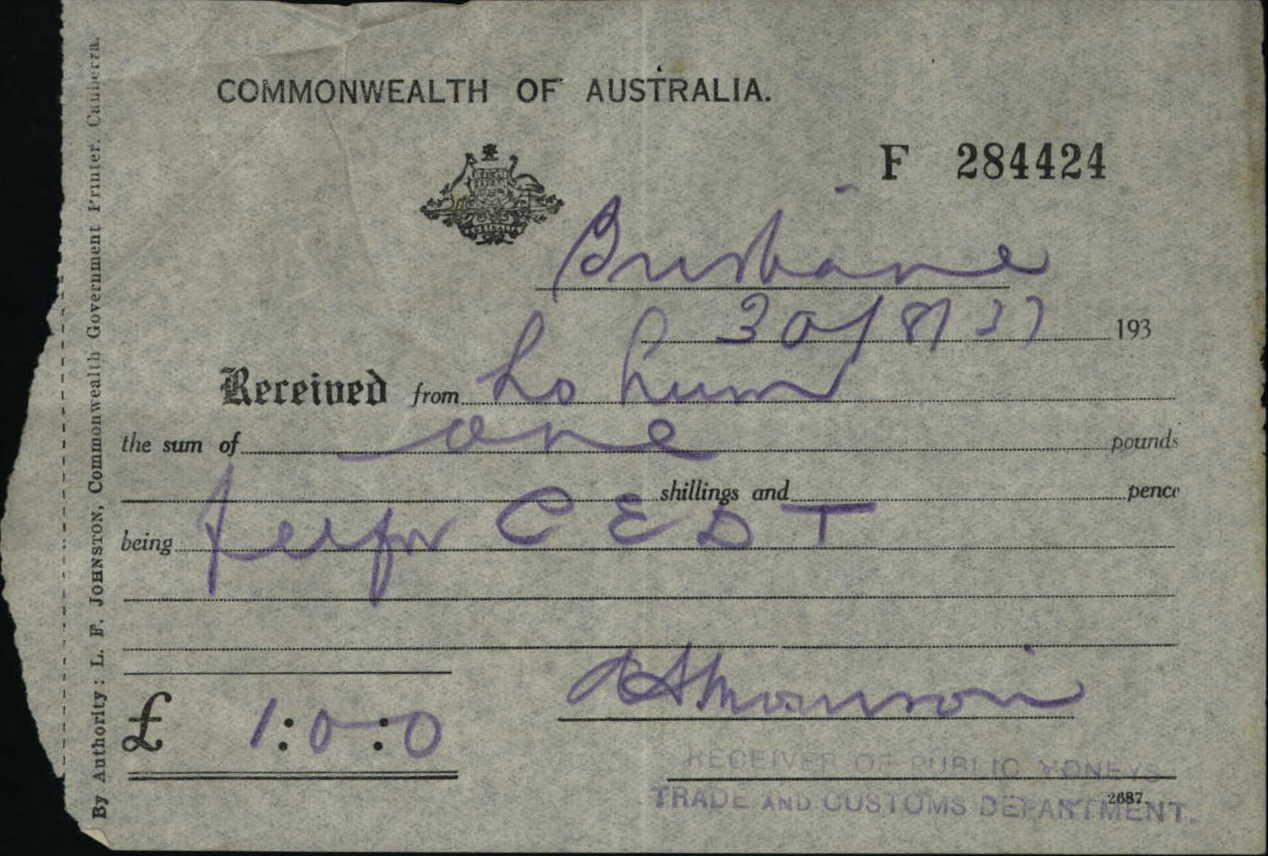 COMMONWEALTH OF AUSTRALIA.
F 284424
Brisbane
30/8/37 193
Received from Lo Lum
the sum of one pounds
shillings and pence
being fee for C E D T
£ 1:0:0
RECEIVER OF PUBLIC MONEYS
TRADE AND CUSTOMS DEPARTMENT.
2687.
By Authority: L. F. JOHNSTON, Commonwealth Government Printer, Canberra.